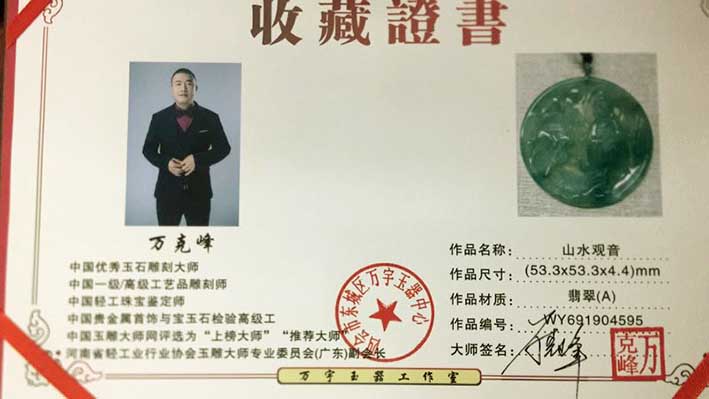 收藏證書
万克峰
中国优秀玉石雕刻大师
中国一级/高级工艺品雕刻师
中国轻工珠宝鉴定师
中国贵金属首饰与宝玉石检验高级工
中国玉雕大师网评选为“上榜大师” “推荐大师”
河南省轻工业行业协会玉雕大师专业委员会(广东)副会长
作品名称: 山水观音
作品尺寸: (53.3x53.3x4.4)mm
作品材质: 翡翠(A)
作品编号: WY691904595
大师签名:
四会市东城区万宇玉器中心
万克峰
万宇玉器工作室